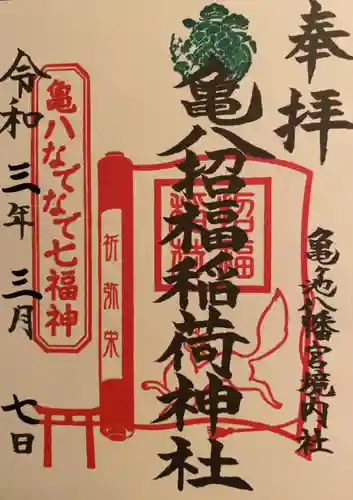 奉拝
亀ヶ池八幡宮境内社
亀八招福稲荷神社
招福稲荷
祈弥栄
亀八なでなで七福神
令和三年三月七日